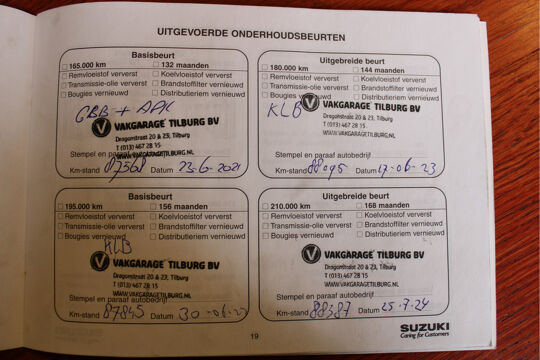 UITGEVOERDE ONDERHOUDSBEURTEN
Basisbeurt
165.000 km 132 maanden
Remvloeistof ververst Koelvloeistof ververst
Transmissie-olie ververst Brandstoffilter vernieuwd
Bougies vernieuwd Distributieriem vernieuwd
GBB + APK
VAKGARAGE TILBURG BV
Dragonstraat 20 & 23, Tilburg
T (013) 467 28 15
WWW.VAKGARAGETILBURG.NL
Stempel en paraaf
Km-stand 87568 Datum 23-6-2021
Uitgebreide beurt
180.000 km 144 maanden
Remvloeistof ververst Koelvloeistof ververst
Transmissie-olie ververst Brandstoffilter vernieuwd
Bougies Distributieriem vernieuwd
KLB
VAKGARAGE TILBURG BV
Dragonstraat 20 & 23, Tilburg
T (013) 467 28 15
WWW.VAKGARAGETILBURG.NL
Stempel en paraaf autobedrijf
Km-stand 88095 Datum 17-06-23
Basisbeurt
195.000 km 156 maanden
Remvloeistof ververst Koelvloeistof ververst
Transmissie-olie ververst Brandstoffilter vernieuwd
Bougies vernieuwd Distributieriem vernieuwd
KLB
VAKGARAGE TILBURG BV
Dragonstraat 20 & 23, Tilburg
T (013) 467 28 15
WWW.VAKGARAGETILBURG.NL
Stempel en paraaf autobedrijf
Km-stand 87845 Datum 30-06-
Uitgebreide beurt
210.000 km 168 maanden
Remvloeistof ververst Koelvloeistof ververst
Transmissie-olie ververst Brandstoffilter vernieuwd
Bougies vernieuwd Distributieriem vernieuwd
VAKGARAGE TILBURG BV
Dragonstraat 20 & 23, Tilburg
T (013) 467 28 15
WWW.VAKGARAGETILBURG.NL
Stempel en paraaf autobedrijf
Km-stand 88387 Datum 25-7-24
19
SUZUKI
Caring for Customers